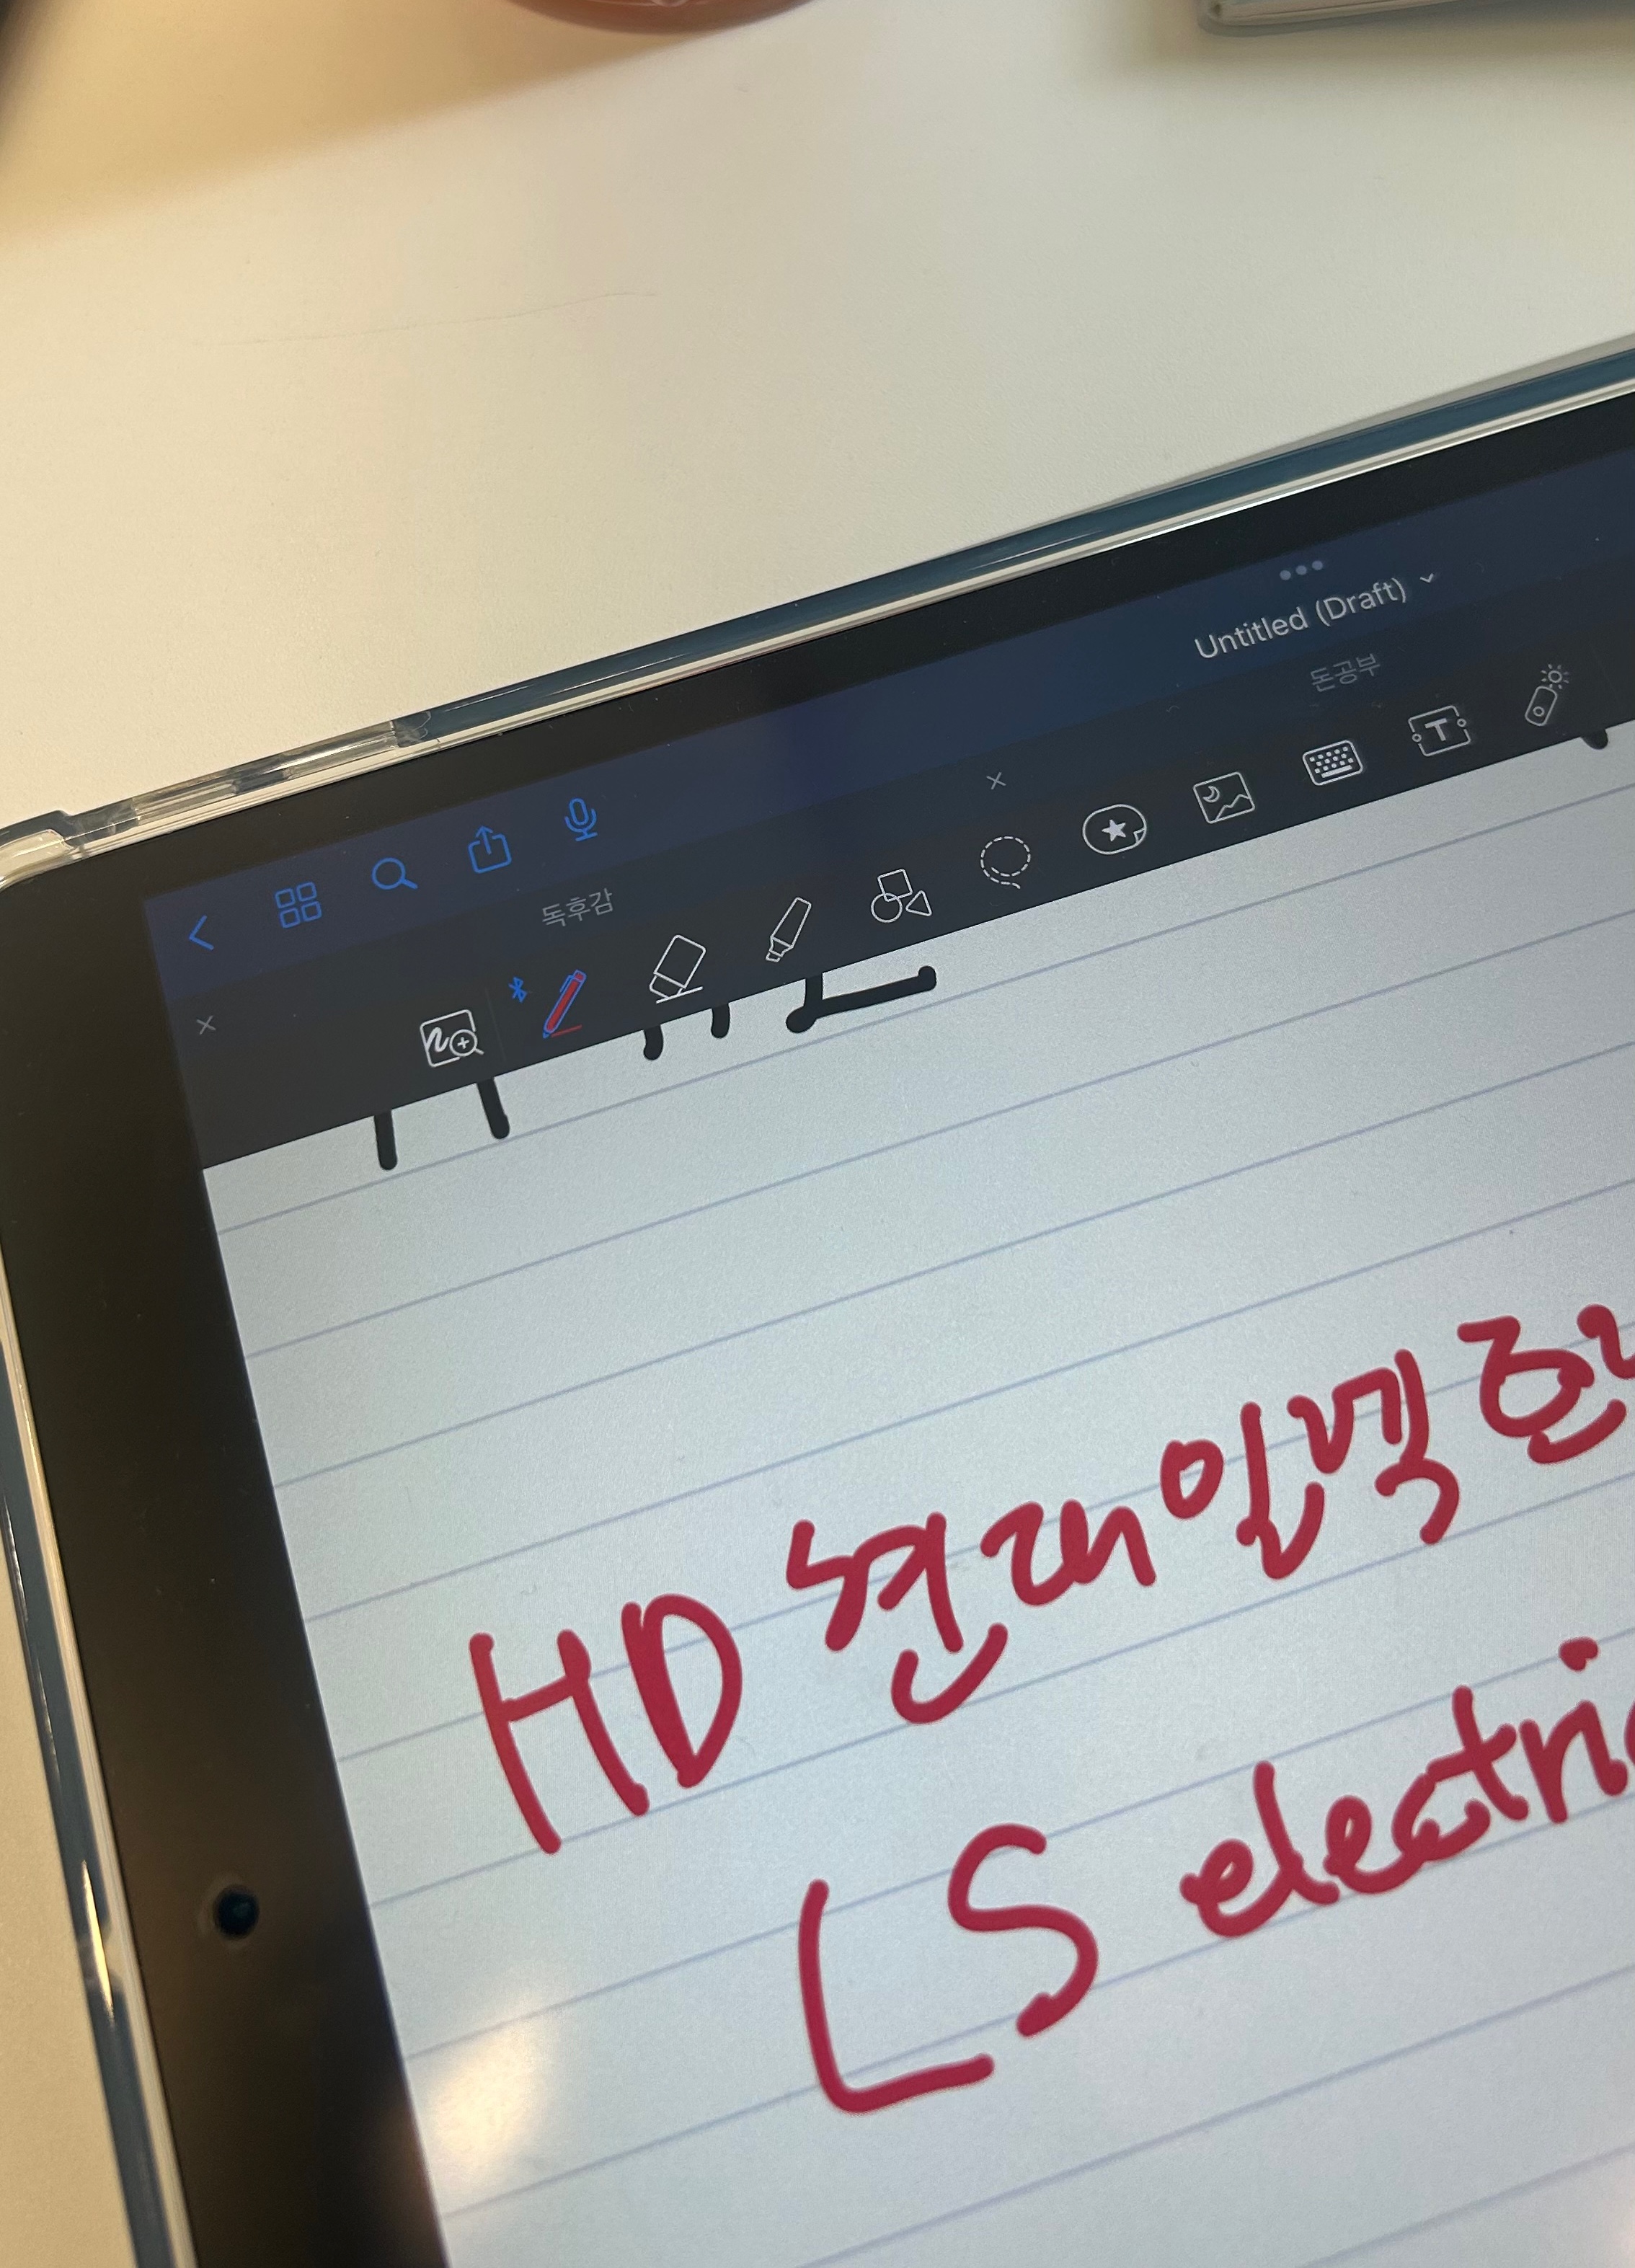 Untitled (Draft)
독후감
돈공부
HD 현대일렉
LS electric